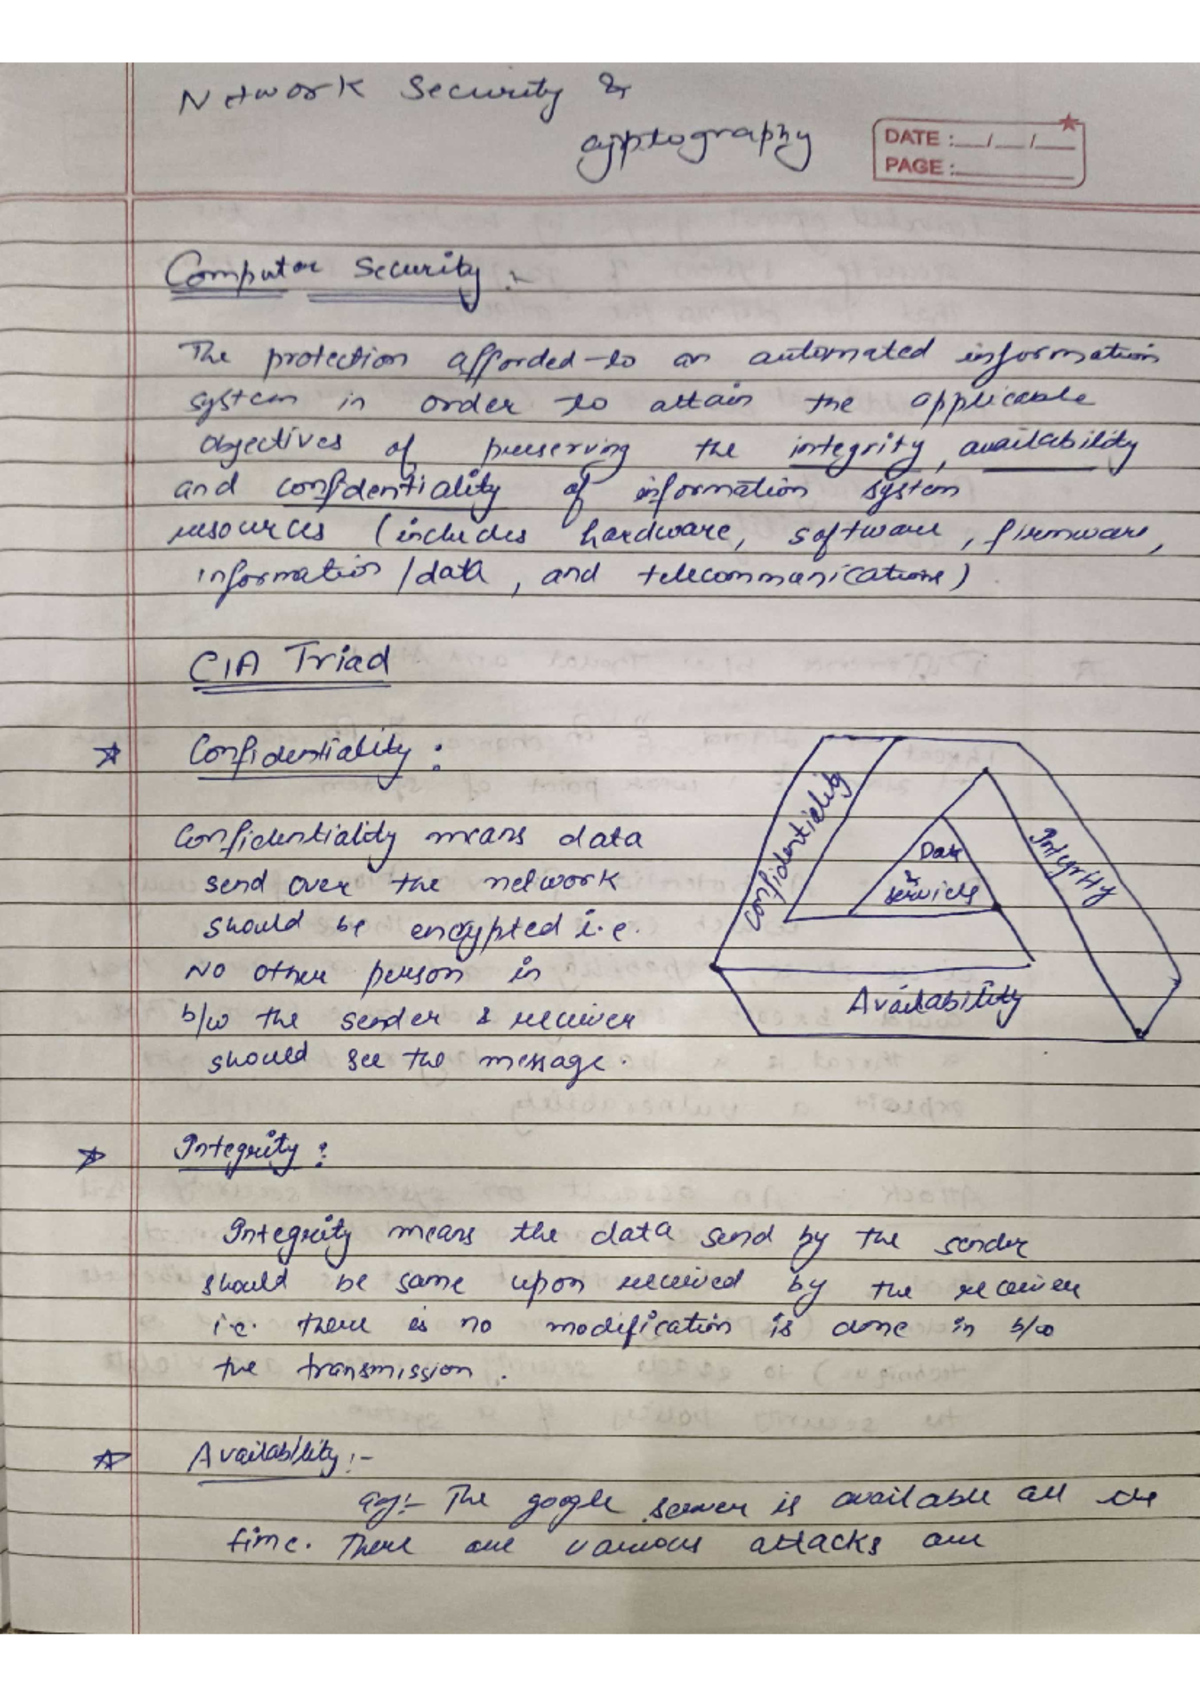 Network Security &
cryptography
DATE :__/__/__
PAGE :______
Computer Security :-
The protection afforded to an automated information
system in order to attain the applicable
objectives of preserving the integrity, availability
and confidentiality of information system
resources (includes hardware, software, firmware,
information/data, and telecommunications)
CIA Triad
☆ Confidentiality :
Confidentiality means data
send over the network
should be encrypted i.e.
No other person in
b/w the sender & receiver
should see the message.
Confidentiality
Data
&
services
Integrity
Availability
☆ Integrity :
Integrity means the data send by the sender
should be same upon received by the receiver
i.e. there is no modification is done in b/w
the transmission.
☆ Availability :-
eg:- The google server is available all the
time. There are various attacks are